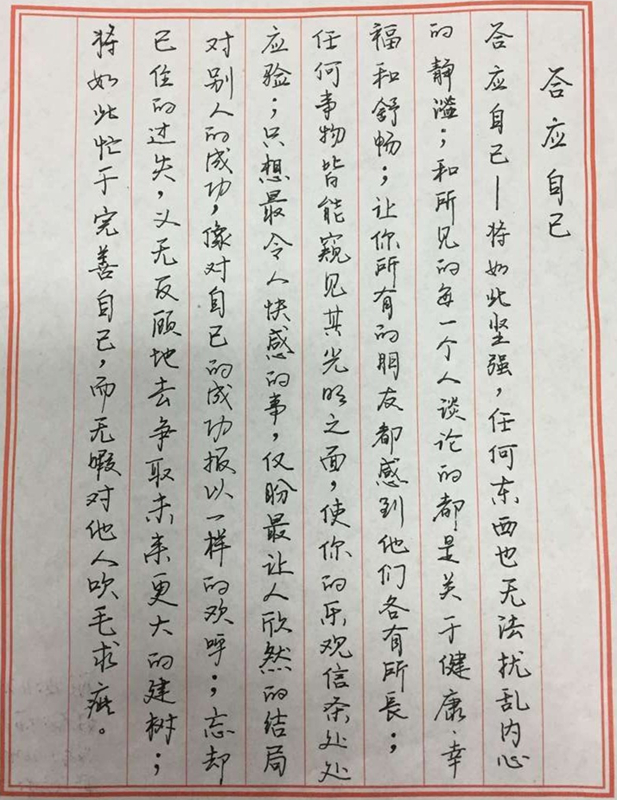 答应自己
答应自己—将如此坚强，任何东西也无法扰乱内心
的静谧；和所见的每一个人谈论的都是关于健康、幸
福和舒畅；让你所有的朋友都感到他们各有所长；
任何事物皆能窥见其光明之面，使你的乐观信条处处
应验；只想最令人快感的事，仅盼最让人欣然的结局
对别人的成功，像对自己的成功报以一样的欢呼；忘却
已往的过失，义无反顾地去争取未来更大的建树；
将如此忙于完善自己，而无暇对他人吹毛求疵。